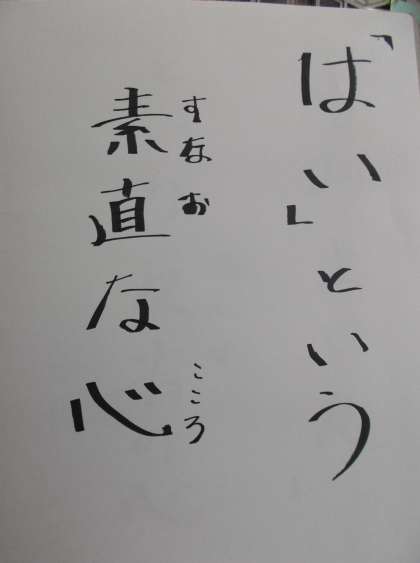 「はい」という
素直な心
すなお
こころ